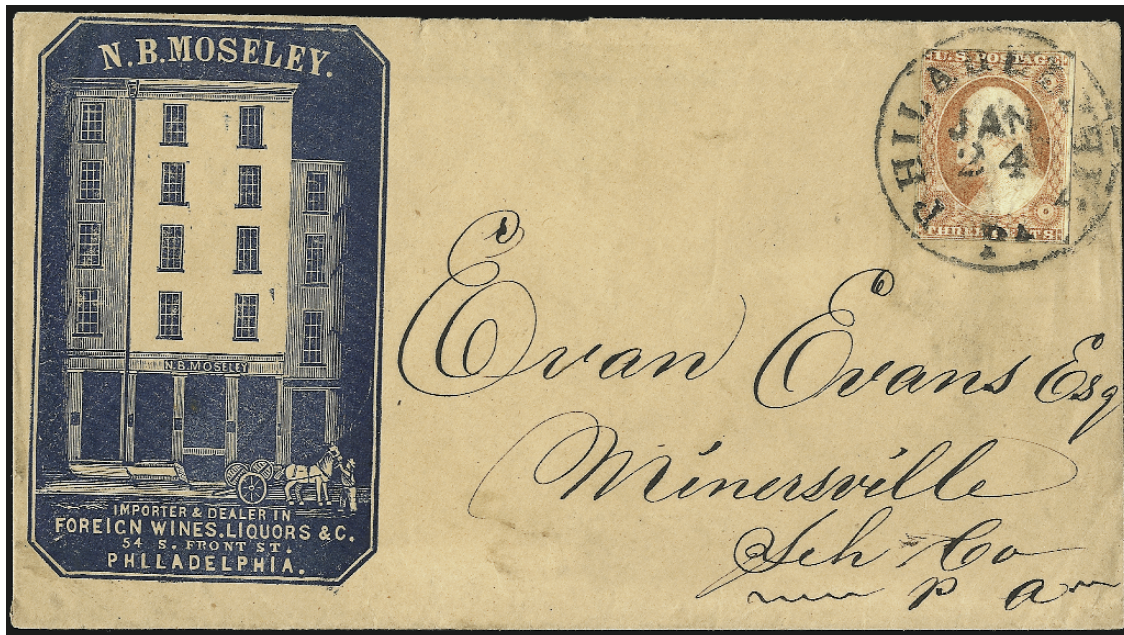 N.B.MOSELEY.
N.B.MOSELEY
IMPORTER & DEALER IN
FOREIGN WINES.LIQUORS &C.
54 S. FRONT ST.
PHILADELPHIA.
U.S. POSTAGE
THREE CENTS
PHILADELPHIA
JAN
24
Pa
Evan Evans Esq
Minersville
Sch Co
Pa